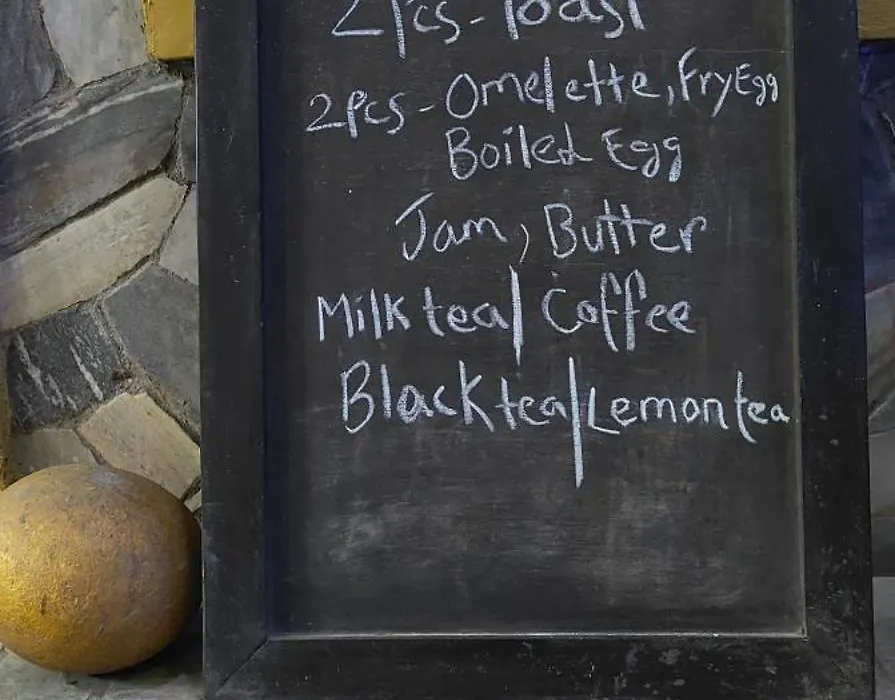 2pcs - Toast
2pcs - Omelette, Fry Egg
Boiled Egg
Jam, Butter
Milk tea / Coffee
Black tea / Lemon tea